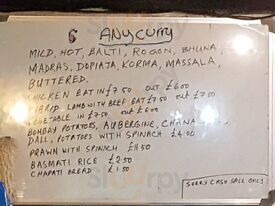 ANY CURRY
MILD, HOT, BALTI, ROGON, BHUNA,
MADRAS, DOPIAJA, KORMA, MASSALA,
BUTTERED.
CHICKEN EAT IN £7.50 OUT £6.00
LAMB WITH BEEF EAT £7.50 OUT £7.50
IN £7.50 OUT £6.00
BOMBAY POTATOES, AUBERGINE, CHANA
DALL, POTATOES WITH SPINACH £4.00
PRAWN WITH SPINACH
BASMATI RICE £2.50
CHAPATI BREAD £1.50
SORRY CASH SALE ONLY